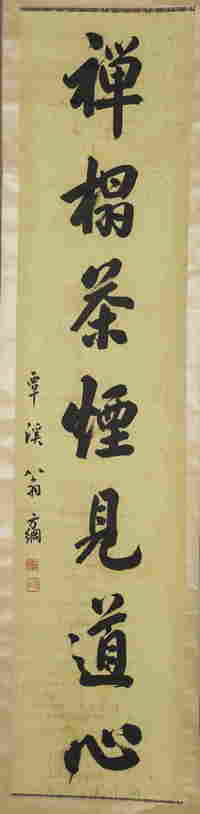 禅榻茶煙見道心
覃溪翁方綱